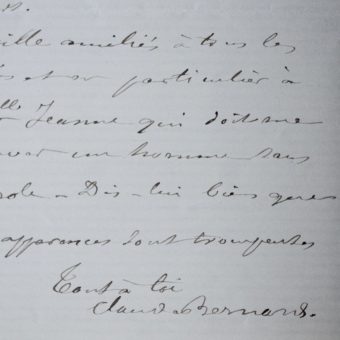 ille amitiés à tous les
et en particulier à
lle Jeanne qui doit me
un homme sans
role - Dis-lui bien que les
apparences sont trompeuses
Tout à toi
Claude Bernard.